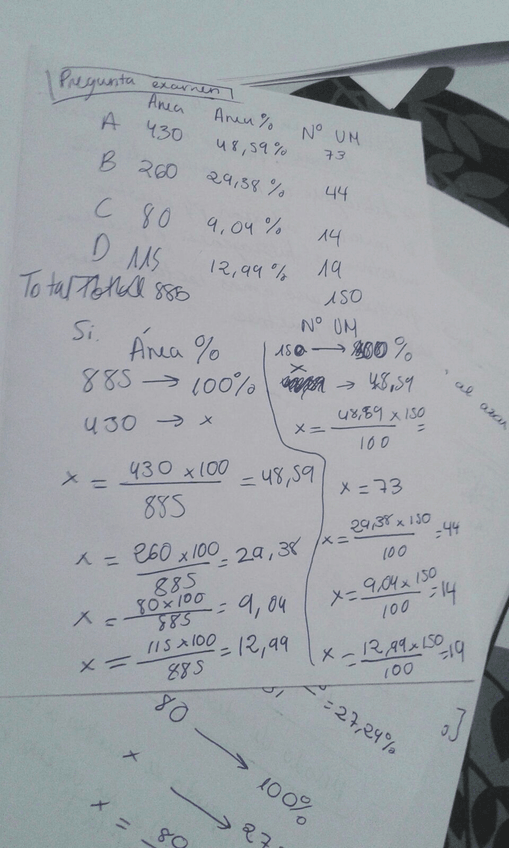 Pregunta examen
Área Área% Nº UM
A 430 48,59% 73
B 260 29,38% 44
C 80 9,04% 14
D 115 12,99% 19
Total Total 885 150
Si.
Área %
885 → 100%
430 → x
x = 430 x 100 / 885 = 48,59
x = 260 x 100 / 885 = 29,38
x = 80 x 100 / 885 = 9,04
x = 115 x 100 / 885 = 12,99
Nº UM
150 → 100%
x → 48,59
x = 48,59 x 150 / 100 =
x = 73
x = 29,38 x 150 / 100 = 44
x = 9,04 x 150 / 100 = 14
x = 12,99 x 150 / 100 = 19
al azar
= 27,24%
80 → 100%
x → 27
x = 80